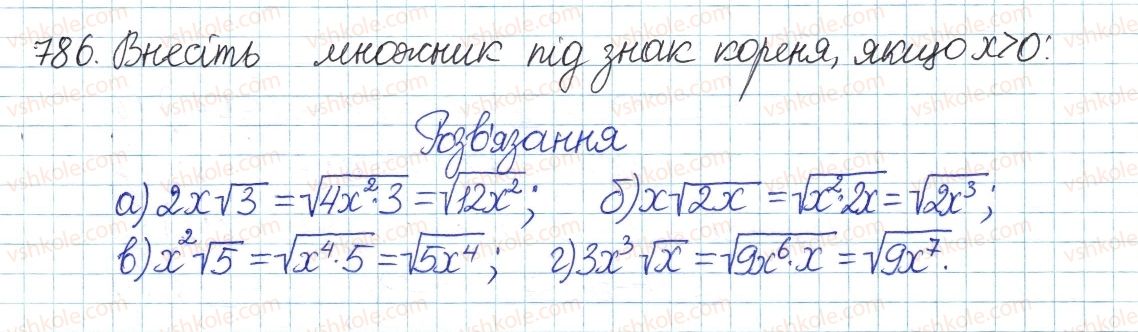 786. Внесіть множник під знак кореня, якщо x>0:
Розв'язання
а) 2x√3 = √(4x²·3) = √(12x²); б) x√(2x) = √(x²·2x) = √(2x³);
в) x²√5 = √(x⁴·5) = √(5x⁴); г) 3x³√x = √(9x⁶·x) = √(9x⁷).